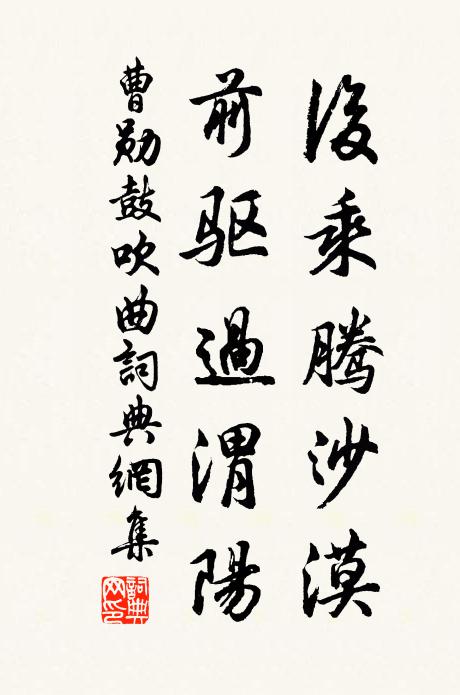 後乘騰沙漠
前驱過渭陽
曹勛鼓吹曲詞典網集
詞典网印